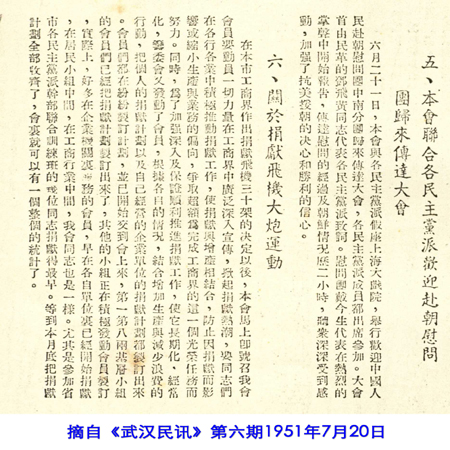 五、本會聯合各民主黨派歡迎赴朝慰問
團歸來傳達大會
六月二十一日，本會與各民主黨派假座上海大戲院，舉行歡迎中國人
民赴朝慰問團中南分團歸來傳達大會，各民主黨派成員都出席參加。大會
首由民革的鄧飛黃同志代表各民主黨派致詞，慰問團戴今生代表在熱烈的
掌聲中開始報告，傳達慰問的經過及朝鮮情况歷二小時，聽衆深深受到感
動，加强了抗美援朝的決心和勝利的信心。
六、關於捐獻飛機大炮運動
在本市工商界作出捐獻飛機三十架的決定以後，本會馬上即號召我會
會員要動員一切力量在工商界中廣泛深入宣傳，掀起捐獻熱潮，要同志們
在各行各業中積極推動捐獻工作，使捐獻與增產相結合，防止因捐獻而影
響或縮小生產與業務的偏向，爭取超額爲完成工商界的這一個光榮任務而
努力。同時，爲了加强深入及保證順利推進捐獻工作，使它長期化，經常
化，籌委會又發動了會員，根據各自的情况，結合增加生產與減少浪費的
行動，把個人的捐獻計劃以及自己經營的企業單位的捐獻計劃都製訂出來
。會員們都在紛紛製訂計劃，並已開始交到會上來，第一第八兩基層小組
的會員們已經把捐獻計劃訂出來了，其他的小組正在積極發動會員製訂
，實際上，好多在企業機關裏服務的會員，早在各自單位裏已經開始捐獻
，在居民小組中間，在工商行業中間，我會同志也是一樣。尤其是參加省
市各民主黨派幹部聯合訓練班的幾位同志捐獻得最早。等到本月底把捐獻
計劃全部收齊了，會裏就可以有一個整個的統計了。
摘自《武汉民讯》第六期1951年7月20日